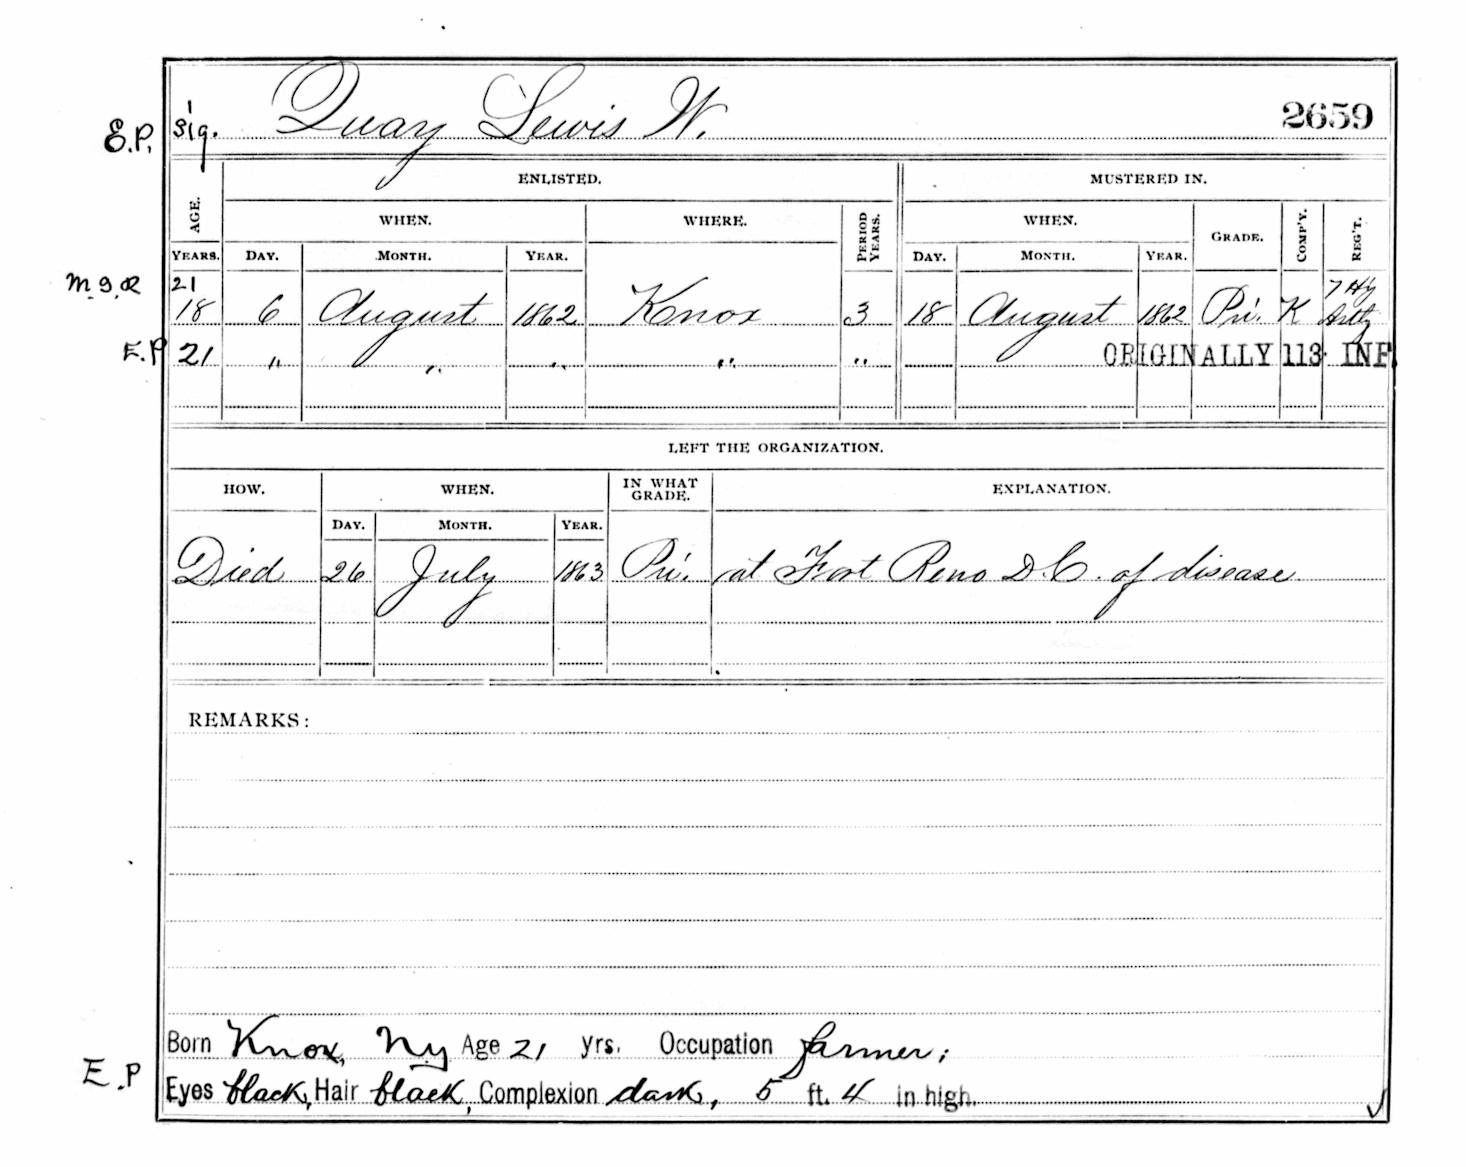 E.P. sig. Quay Lewis W. 2659
ENLISTED. MUSTERED IN.
AGE. WHEN. WHERE. PERIOD YEARS. WHEN. GRADE. COMP'Y. REG'T.
YEARS. DAY. MONTH. YEAR. DAY. MONTH. YEAR.
M.I.R 21 7 Hy
18 6 August 1862 Knox 3 18 August 1862 Pri. K Artly
E.P 21 " " " " " ORIGINALLY 113 INF.
LEFT THE ORGANIZATION.
HOW. WHEN. IN WHAT GRADE. EXPLANATION.
DAY. MONTH. YEAR.
Died 26 July 1863 Pri. at Fort Reno D.C. of disease
REMARKS:
Born Knox, Ny Age 21 yrs. Occupation farmer;
E.P Eyes black, Hair black, Complexion dark, 5 ft. 4 in high.